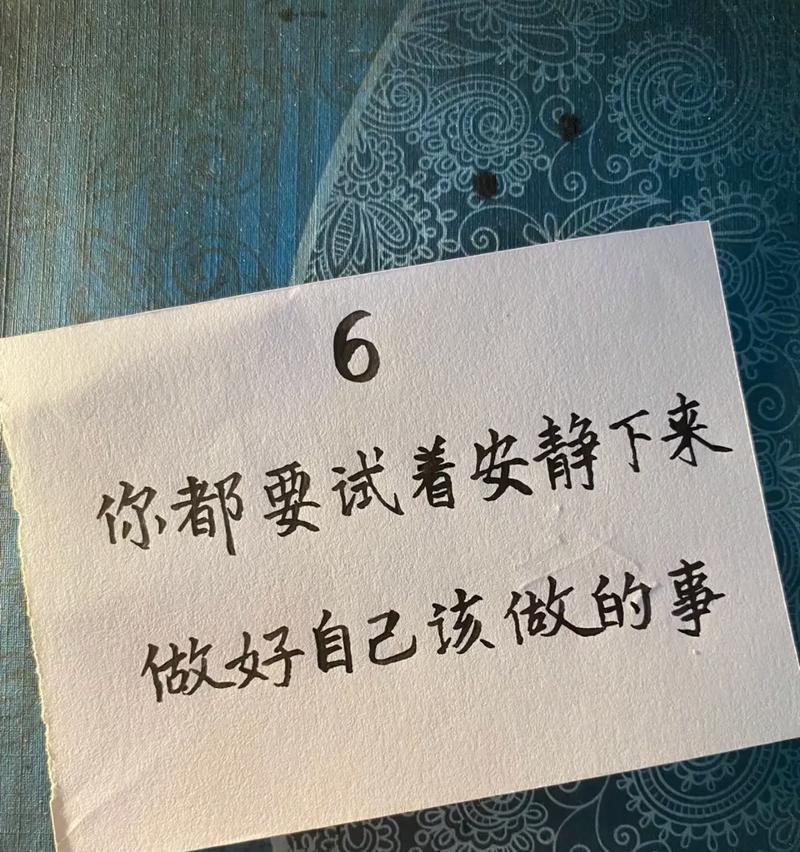 6
你都要试着安静下来
做好自己该做的事